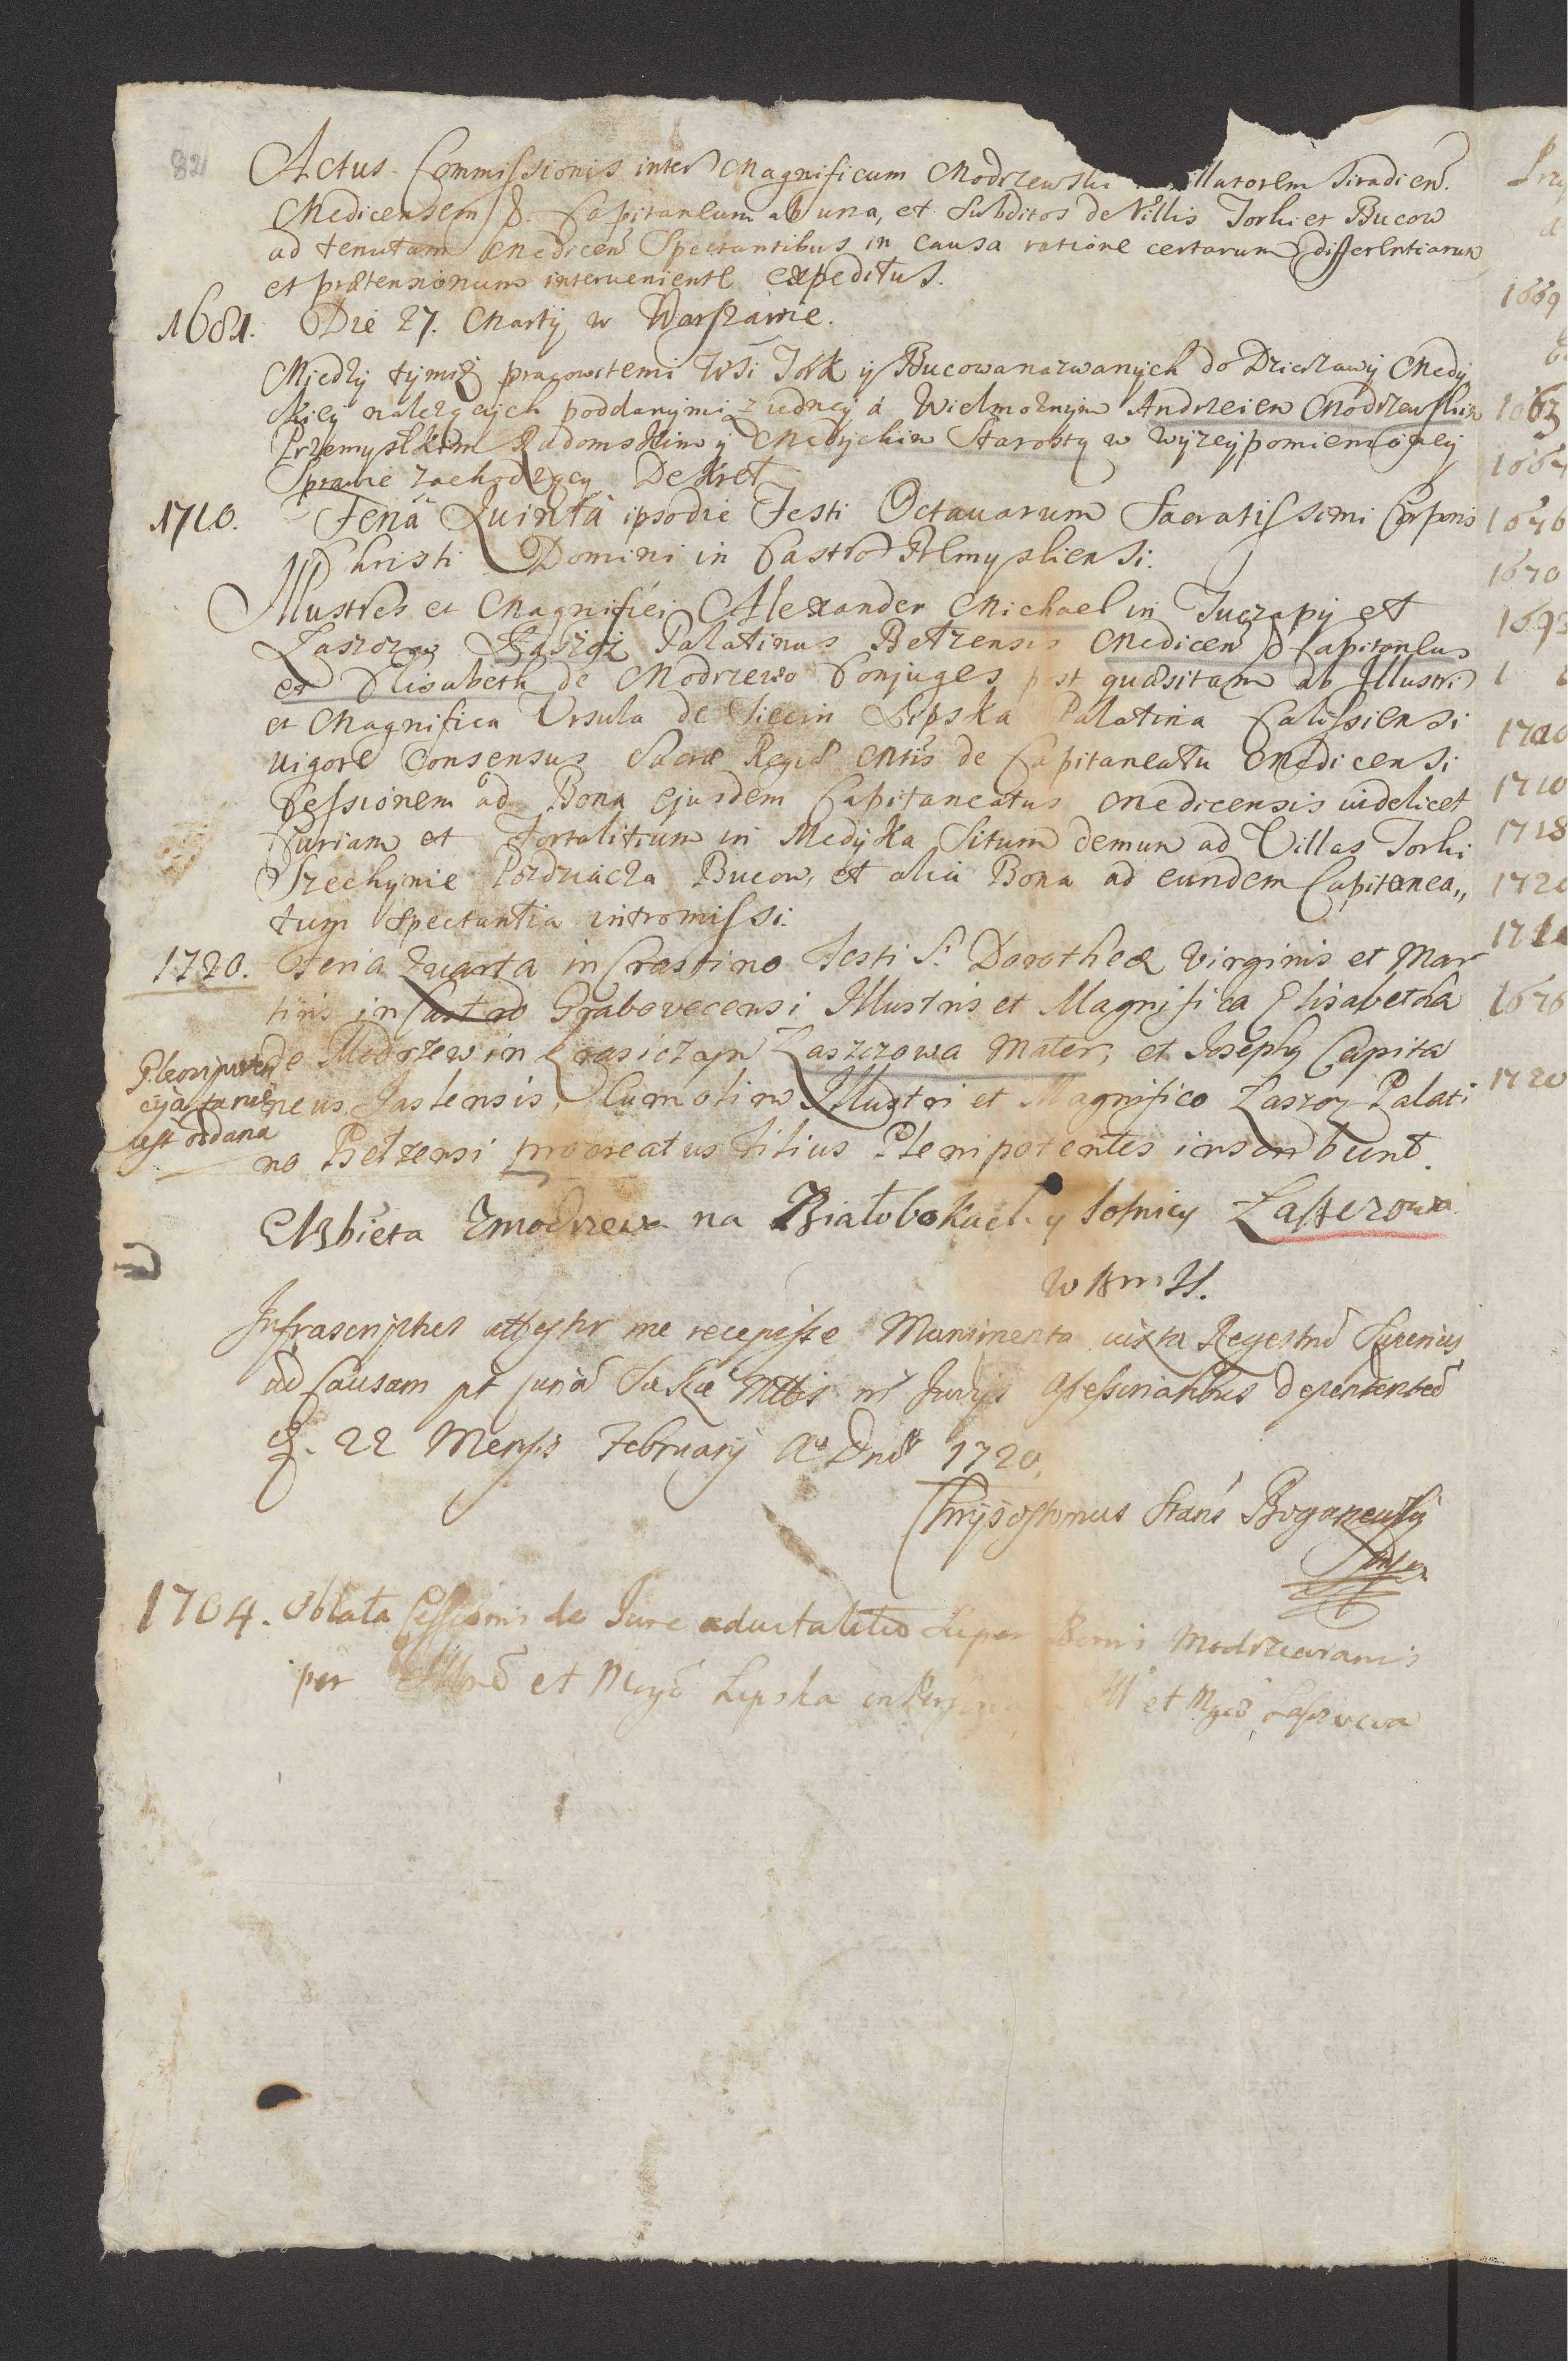 82
Actus Commissionis inter Magnificum Modrzewski llatorem Siradien.
Medicensem & Capitaneum ab una, et Subditos de Villis Torki et Bucow
ad tenutam Medicen Spectantibus in causa ratione certarum differentiarum
et prætensionum interveniente expeditus.
1681. Die 27. Martij w Warszawie.
Między tymisz pracowitemi Wsi Tork y Bucowa nazwanych do Dzierzawy Medy
skiey należących poddanymi z iedney á Wielmożnym Andrzeiem Modrzewskim
Przemyslkim Radomskim y Medyckim Starostą w wyzeypomienioney
Sprawie zachodzący Dekret
1710. Feriâ Quintâ ipsodie Festi Octavarum Sacratissimi Corporis
Christi Domini in Castro Premysliensi.
Illustres et Magnifici Alexander Michael in Tuczapy et
Laszczow Łaszcz Palatinus Betzensis Medicen & Capitaneus
et Elisabeth de Modrzewo Conjuges post quæsitam ab Illustri
et Magnifica Ursula de Siecin Lipska Palatina Calissiensi
vigore Consensus Sacræ Regiæ Mttis de Capitaneatu Medicensi
Cessionem ad Bona ejusdem Capitaneatus Medicensis videlicet
Curiam et Fortalitium in Medyka Situm demum ad Villas Torki
Szechynie Pozdziacza Bucow, et alia Bona ad eundem Capitanea,,
tum Spectantia intromissi.
1720. Feria Quarta in Crastino Festi S. Dorotheæ Virginis et Mar
tiris in Castro Grabovecensi Illustris et Magnifica Elisabetha
de Modrzew in Krasiczyn Laszczowa Mater, et Josephus Capita
neus Jaslensis, cum olim Illustri et Magnifico Laszcz Palati
no Betzensi procreatus Filius Plenipotentes inscribunt.
Plenipoten
cyja ta nie
iest oddana
Elzbieta Zmodrzewa na Białobokach y Sosnicy Łaszczowa
w B m H.
Infrascriptus attestor me recepisse Munimenta iuxta Regestrũ Superius
ad Causam pt curiã Sac Mttis Judys Assessorialibus dependentẽ
d. 22 Mensis February Aº Dnỹ 1720
Chrysostomus Stanis
1704. Oblata Cessionis de Jure advitalitio Super Bonis Modrzewianis
per Illrẽ et Magã Lipska et Mgcã Laszczowa
1669
1663
1676
1670
1710
1718
1720
1676
1720